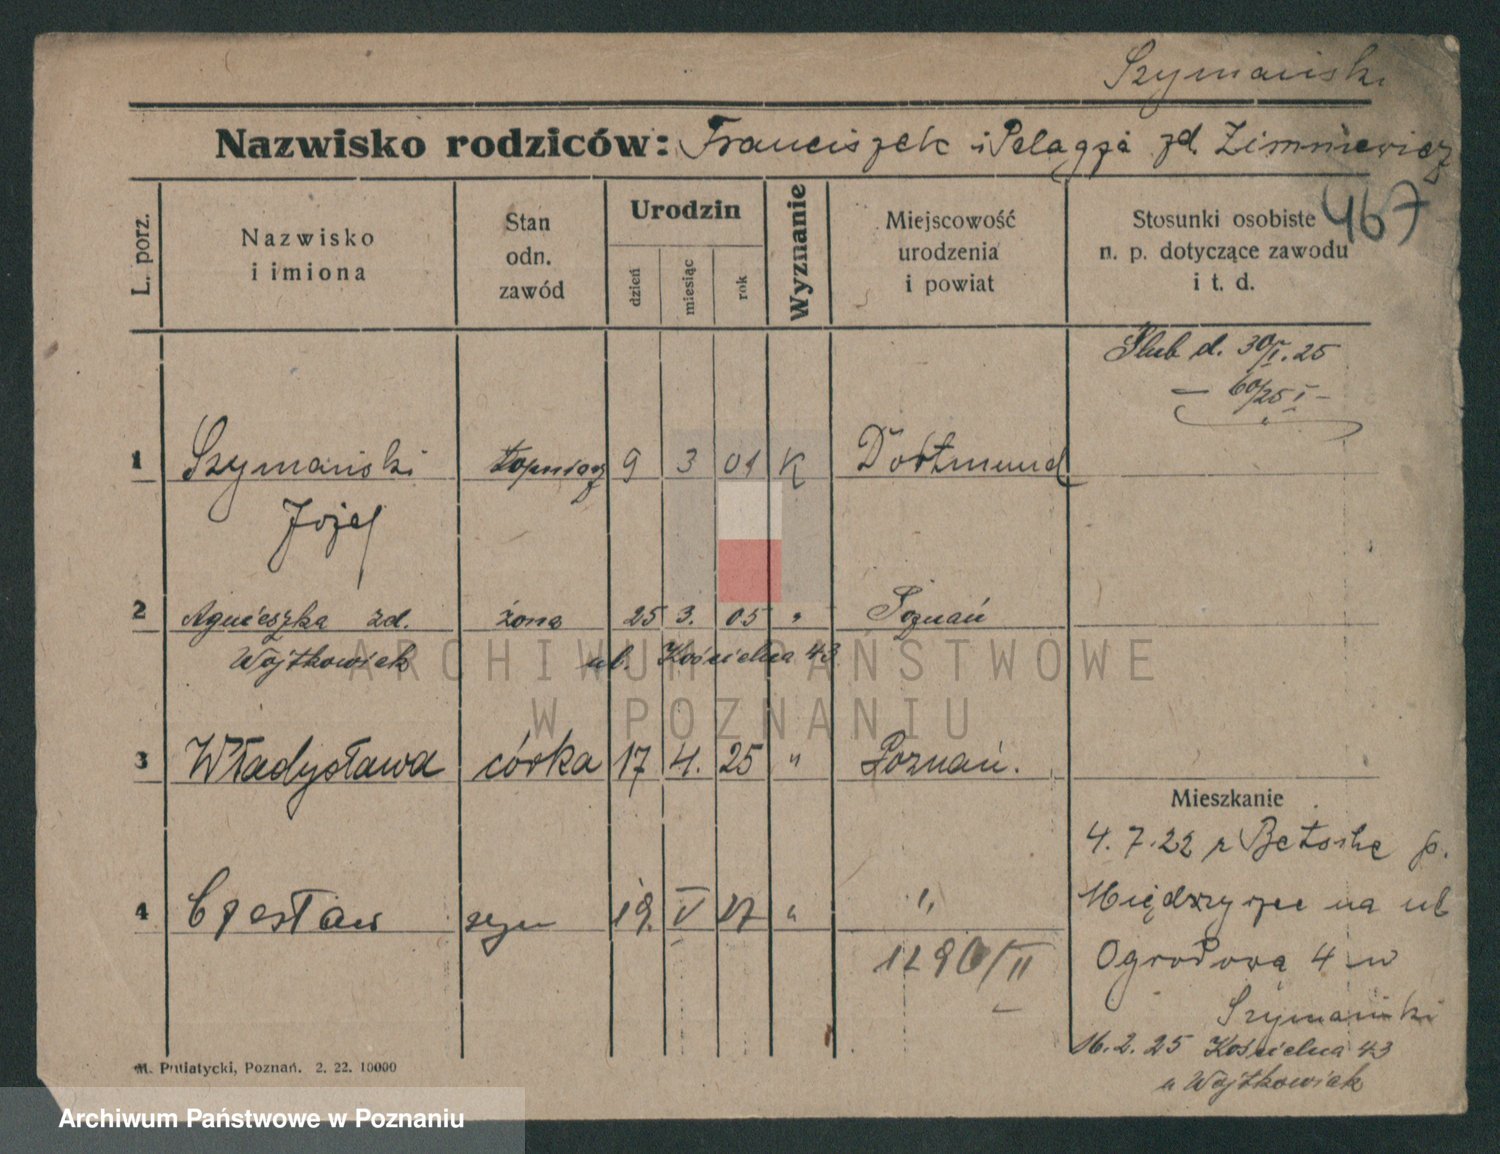 Szymański
Nazwisko rodziców: Franciszek i Pelagja zd. Zimniewicz
467
L. porz.
Nazwisko
i imiona
Stan
odn.
zawód
Urodzin
dzień
miesiąc
rok
Wyznanie
Miejscowość
urodzenia
i powiat
Stosunki osobiste
n. p. dotyczące zawodu
i t. d.
Ślub d. 30/I. 25
— 60/25 I —
1 Szymański 9 3 01 K Dortmund
Józef
2 Agnieszka zd. żona 25 3. 05 " Poznań
Wojtkowiak ul. Kościelna 43
3 Władysława córka 17 4. 25 " Poznań.
4 Czesław syn 19. V 27 " "
1290/II
Mieszkanie
4.7.22 z p.
Międzyrzec na ul
Ogrodową 4 w
Szymański
16.2.25 Kościelna 43
u Wojtkowiak
M. Putiatycki, Poznań. 2. 22. 10000
ARCHIWUM PAŃSTWOWE
W POZNANIU
Archiwum Państwowe w Poznaniu